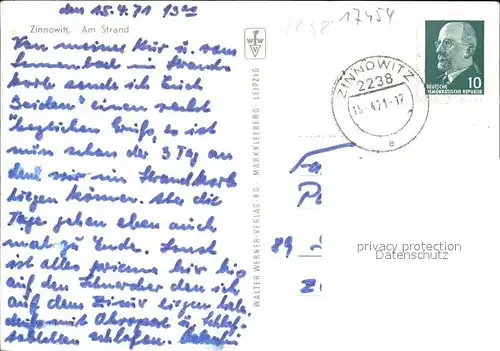 den 15.4.71 13⁰⁰
17454
Zinnowitz. Am Strand
Von meiner Kur u. vom
Sonnenbad im Strand
korb sende ich Euch
Beiden einen recht
herzlichen Gruß, es ist
nun schon der 3 Tag an
dem wir im Strandkorb
liegen können. Aber die
Tage gehen eben auch
mal zu Ende. Sonst
ist alles prima hier bis
auf den Schnarcher den ich
auf dem Zimmer liegen habe,
mit Ohropax u. Schlaf-
tabletten schlafen.
WALTER WERNER-VERLAG-KG · MARKKLEEBERG · LEIPZIG
ZINNOWITZ
2238
15.4.71-17
a
DEUTSCHE
DEMOKRATISCHE REPUBLIK
10
89
privacy protection
Datenschutz